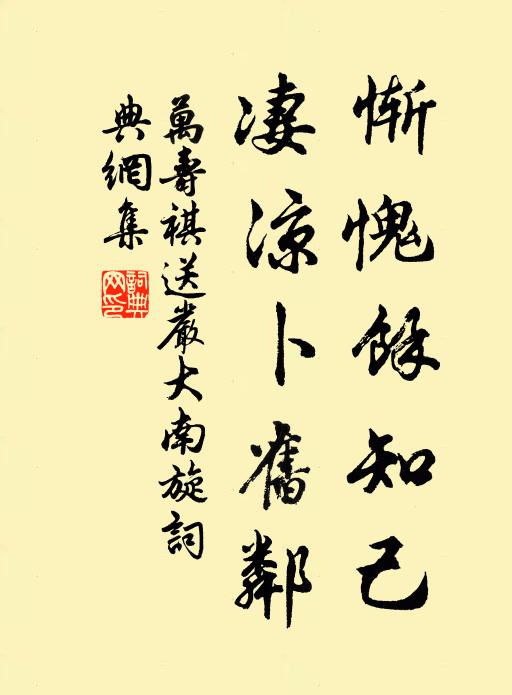 慚愧餘知己
淒涼卜舊鄰
萬壽祺送嚴大南旋詞
典網集
詞典網印